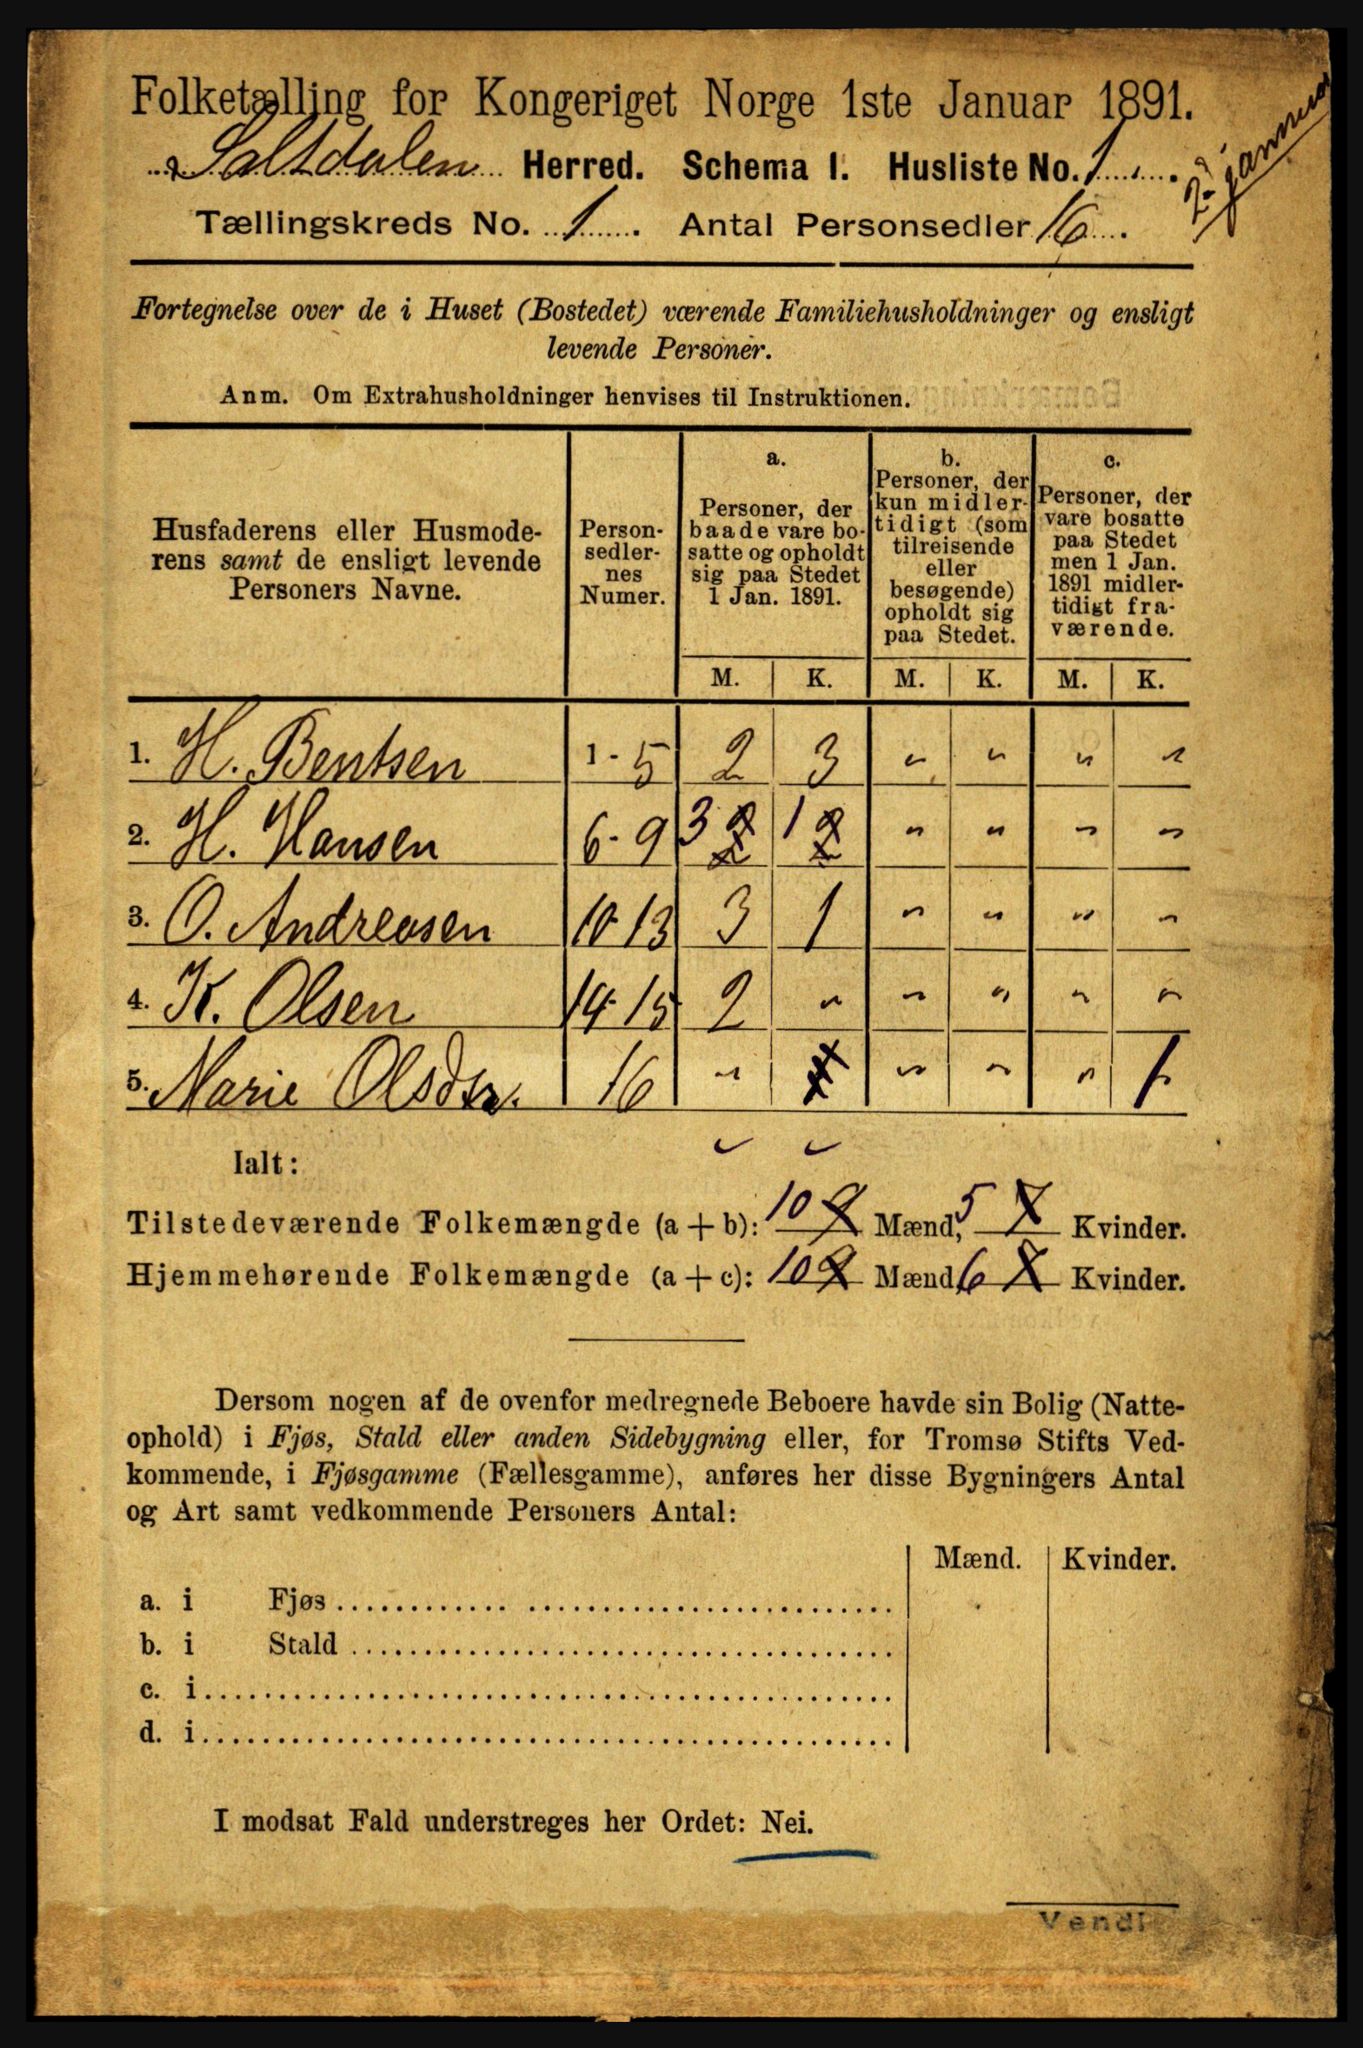 Folketælling for Kongeriget Norge 1ste Januar 1891.
2d januar
Saltdalen Herred. Schema I. Husliste No. 1
Tællingskreds No. 1. Antal Personsedler 16.
Fortegnelse over de i Huset (Bostedet) værende Familiehusholdninger og ensligt
levende Personer.
Anm. Om Extrahusholdninger henvises til Instruktionen.
Husfaderens eller Husmode-
rens samt de ensligt levende
Personers Navne.
Person-
sedler-
nes
Numer.
a.
Personer, der
baade vare bo-
satte og opholdt
sig paa Stedet
1 Jan. 1891.
b.
Personer, der
kun midler-
tidigt (som
tilreisende
eller
besøgende)
opholdt sig
paa Stedet.
c.
Personer, der
vare bosatte
paa Stedet
men 1 Jan.
1891 midler-
tidigt fra-
værende.
M. K. M. K. M. K.
1. H. Bentsen 1-5 2 3 " " " "
2. H. Hansen 6-9 3 2 1 2 " " " "
3. O. Andreasen 10-13 3 1 " " " "
4. K. Olsen 14-15 2 " " " " "
5. Marie Olsdtr. 16 " 1 " " " 1
Ialt:
Tilstedeværende Folkemængde (a + b): 10 9 Mænd, 5 7 Kvinder.
Hjemmehørende Folkemængde (a + c): 10 9 Mænd 6 7 Kvinder.
Dersom nogen af de ovenfor medregnede Beboere havde sin Bolig (Natte-
ophold) i Fjøs, Stald eller anden Sidebygning eller, for Tromsø Stifts Ved-
kommende, i Fjøsgamme (Fællesgamme), anføres her disse Bygningers Antal
og Art samt vedkommende Personers Antal:
Mænd. Kvinder.
a. i Fjøs
b. i Stald
c. i
d. i
I modsat Fald understreges her Ordet: Nei.
Vend!